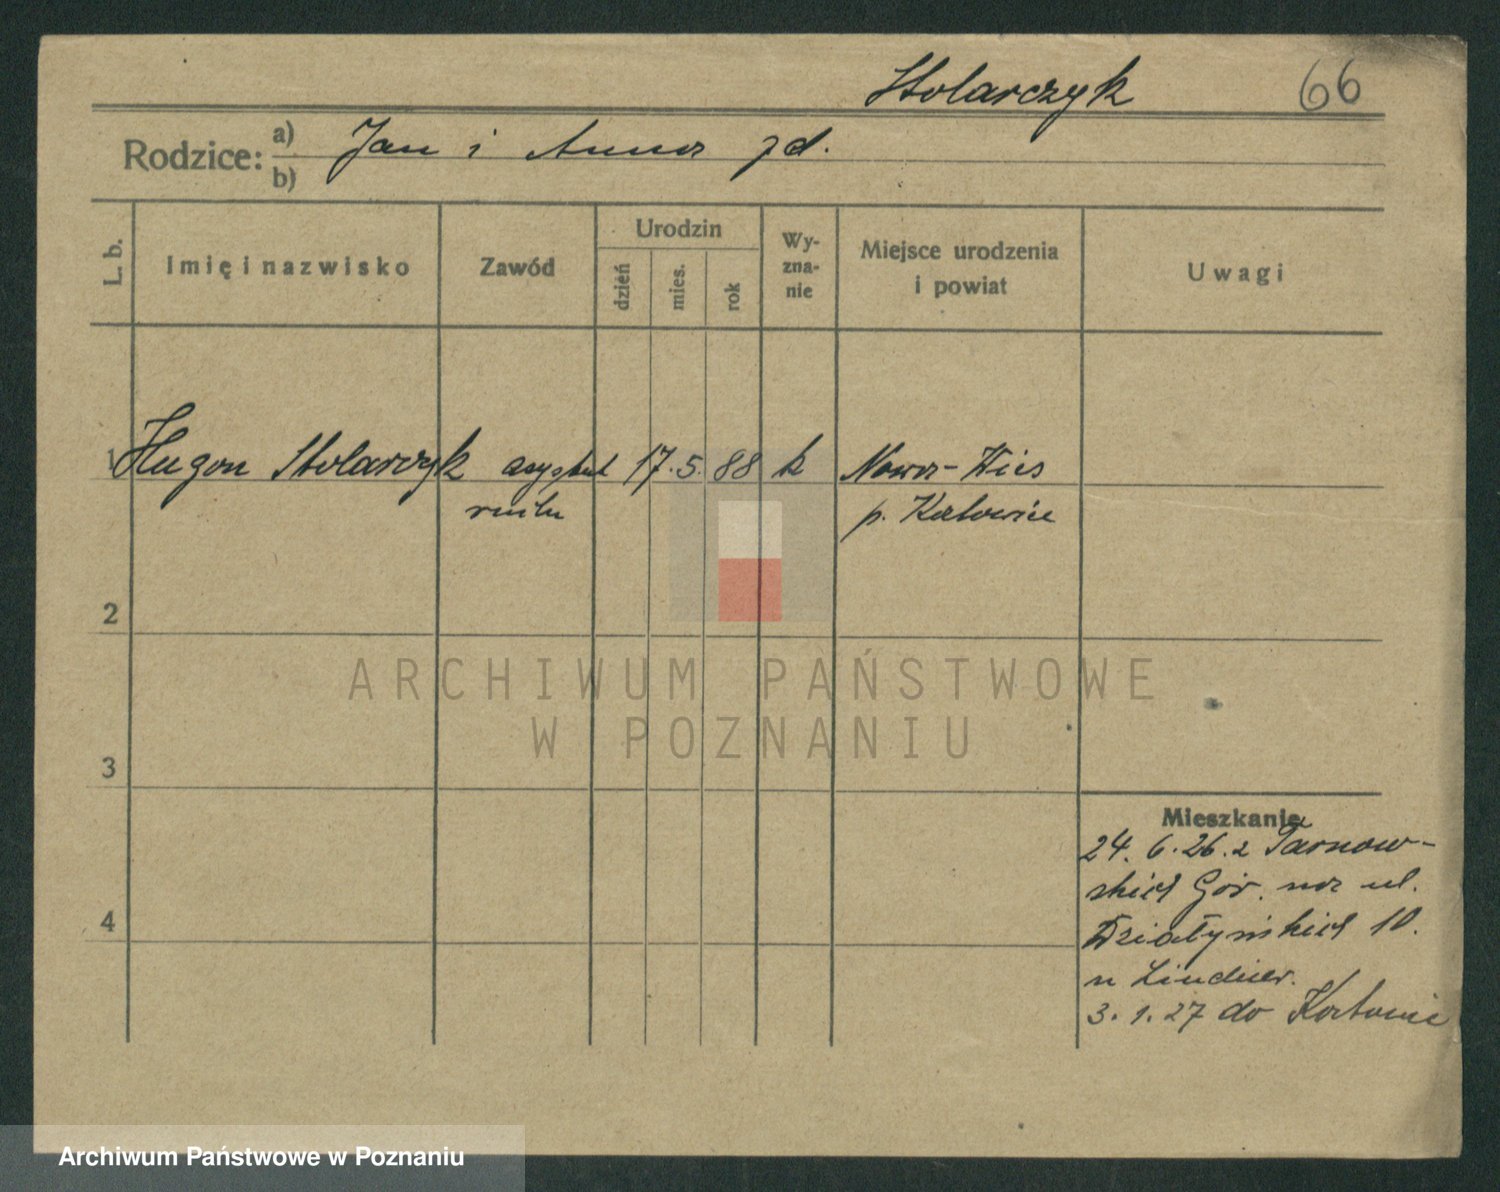 Stolarczyk 66
Rodzice: a) b) Jan i Anna zd.
L. b. Imię i nazwisko Zawód Urodzin dzień mies. rok Wy-zna-nie Miejsce urodzenia i powiat Uwagi
1 Hugon Stolarczyk asystent 17. 5. 88 k Nowa-Wieś
p. Katowice
2
3
4
Mieszkanie
24. 6. 26. z Tarnow-
skich Gór. na ul.
Działyńskich 10.
u Lindner.
3. 1. 27 do Katowic
ARCHIWUM PAŃSTWOWE
W POZNANIU
Archiwum Państwowe w Poznaniu